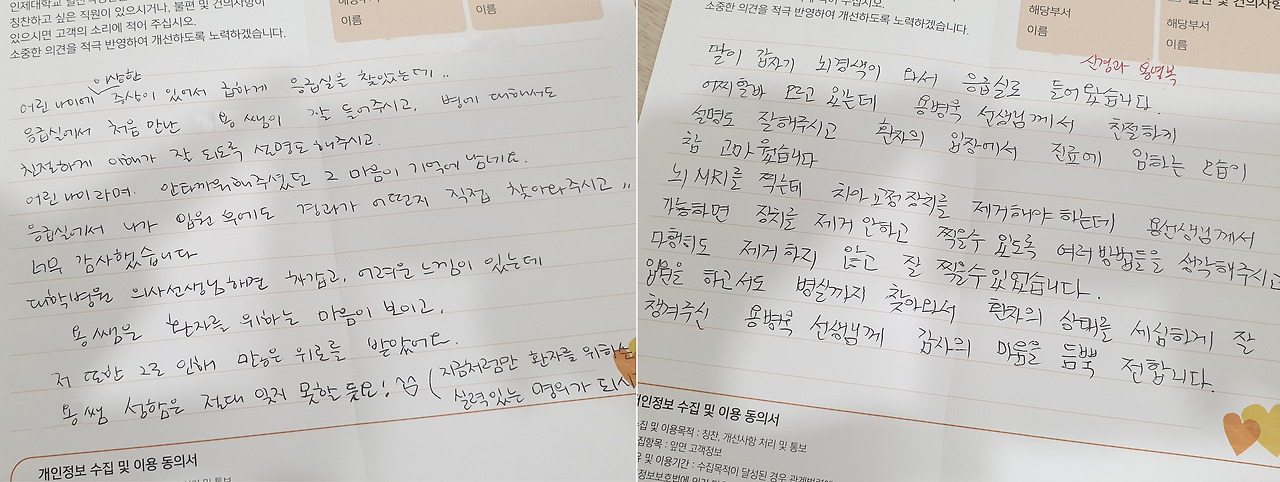 인제대학교 일산백병원
칭찬하고 싶은 직원이 있으시거나, 불편 및 건의사항이
있으시면 고객의 소리에 적어 주십시오.
소중한 의견을 적극 반영하여 개선하도록 노력하겠습니다.
해당부서
이름
이름
이상한
어린 나이에 증상이 있어서 급하게 응급실을 찾았는데..
응급실에서 처음 만난 용쌤이 잘 들어주시고, 병에 대해서도
친절하게 이해가 잘 되도록 설명도 해주시고.
어린 나이라며. 안타까워해주셨던 그 마음이 기억에 남네요.
응급실에서 나가 입원 후에도 경과가 어떤지 직접 찾아와주시고..
너무 감사했습니다
대학병원 의사선생님하면 차갑고, 어려운 느낌이 있는데
용쌤은 환자를 위하는 마음이 보이고,
저 또한 그로 인해 많은 위로를 받았어요.
용쌤 성함은 절대 잊지 못할 듯요!
(지금처럼만 환자를 위하는
실력있는 명의가 되시
개인정보 수집 및 이용 동의서
있으시면 고객의 소리에 적어 주십시오.
소중한 의견을 적극 반영하여 개선하도록 노력하겠습니다.
해당부서
이름
불편 및 건의사항
해당부서
이름
신경과 용병욱
딸이 갑자기 뇌경색이 와서 응급실로 들어왔습니다.
어찌할바 모르고 있는데 용병욱 선생님께서 친절하게
설명도 잘해주시고 환자의 입장에서 진료에 임하는 모습이
참 고마웠습니다
뇌 MRI를 찍는데 치아교정장치를 제거해야 하는데 용선생님께서
가능하면 장치를 제거 안하고 찍을수 있도록 여러방법들을 생각해주시고
다행히도 제거하지 않고 잘 찍을수있었습니다.
입원을 하고서도 병실까지 찾아와서 환자의 상태를 세심하게 잘
챙겨주신 용병욱 선생님께 감사의 마음을 듬뿍 전합니다.
개인정보 수집 및 이용 동의서
수집 및 이용목적 : 칭찬, 개선사항 처리 및 통보
수집항목 : 앞면 고객정보
보유 및 이용기간 : 수집목적이 달성된 경우 관계법령에